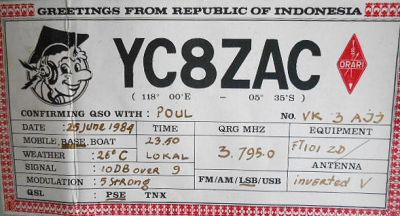 GREETINGS FROM REPUBLIC OF INDONESIA
YC8ZAC
ORARI
( 118° 00'E — 05° 35'S )
CONFIRMING QSO WITH : POUL NO. VK 3 AJJ
DATE : 25 June 1984 TIME QRG MHZ EQUIPMENT
MOBILE, BASE, BOAT 23.50 3.795.0 FT101 ZD/
WEATHER : 26°C LOKAL ANTENNA
SIGNAL : 10DB over 9
MODULATION : 5 Strong FM/AM/LSB/USB inverted V
QSL PSE TNX